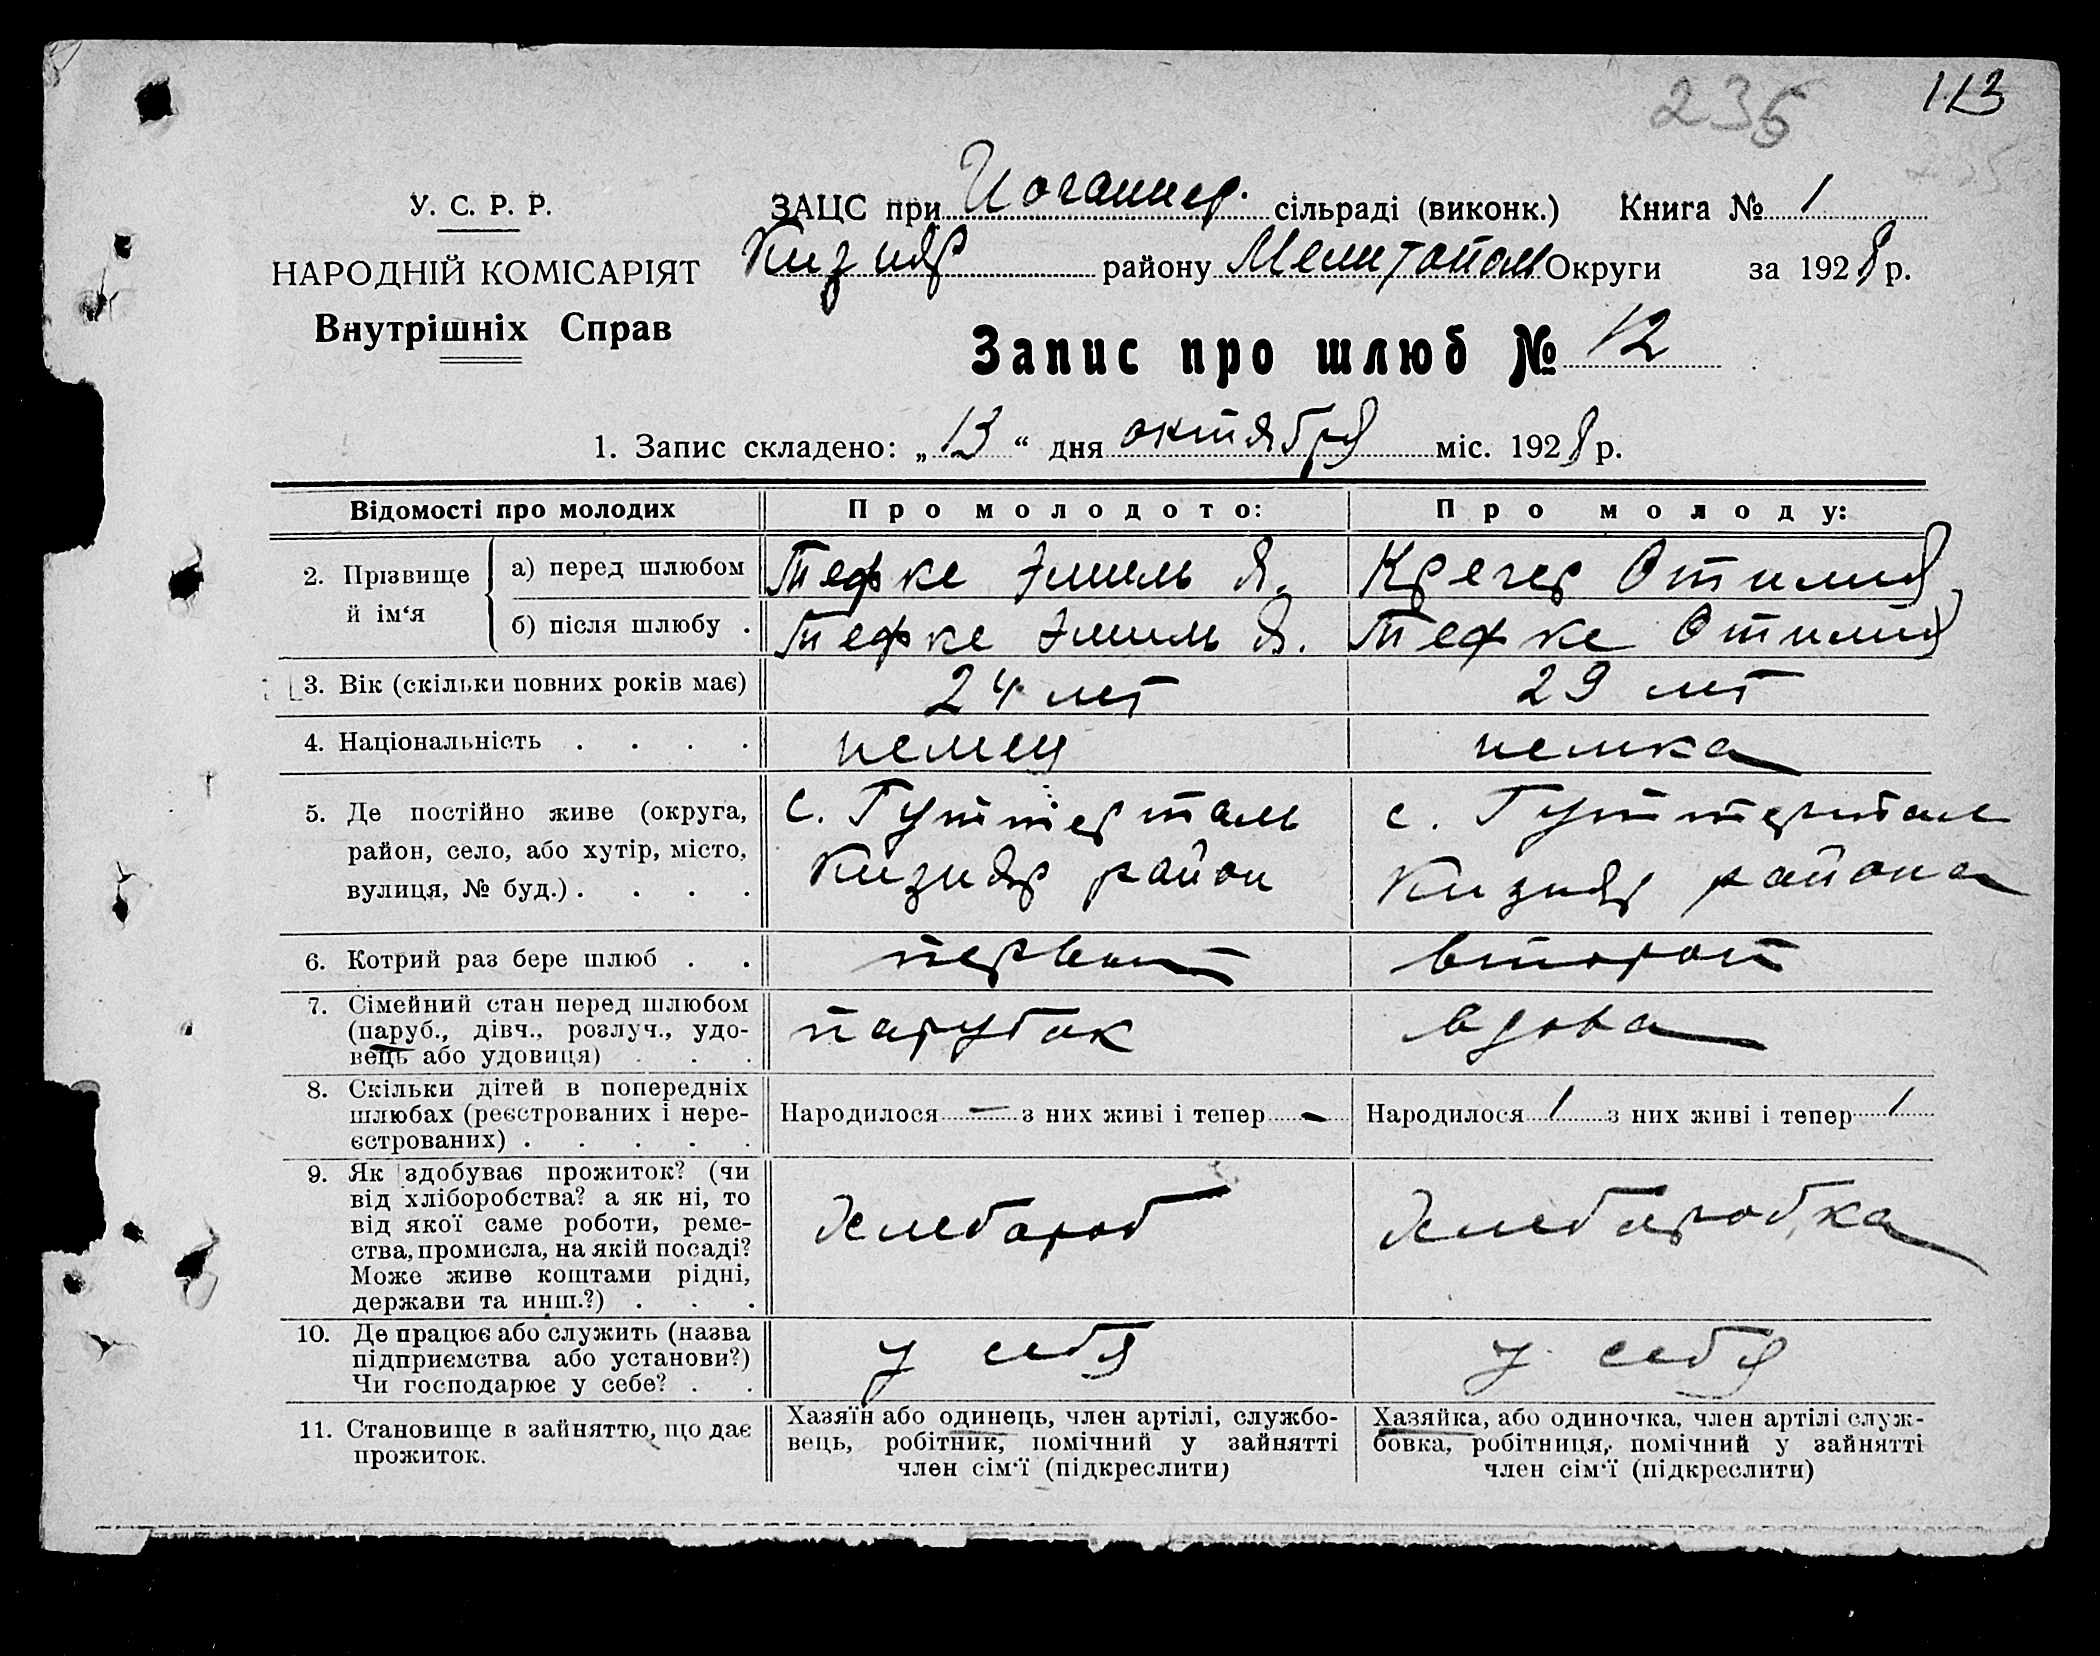 236 113
У. С. Р. Р.
НАРОДНІЙ КОМІСАРІЯТ
Внутрішніх Справ
ЗАЦС при Иоганнер. сільраді (виконк.) Книга № 1
Кизияр району Мелитопол Округи за 1928 р.
Запис про шлюб № 12
1. Запис складено: „13“ дня октября міс. 1928 р.
Відомості про молодих
Про молодого:
Про молоду:
2. Прізвище й ім‘я
а) перед шлюбом
Тефке Эмиль Я.
Кречер Отилия
б) після шлюбу .
Тефке Эмиль Я.
Тефке Отилия
3. Вік (скільки повних років має)
24 лет
29 лет
4. Національність . . . .
немец
немка
5. Де постійно живе (округа,
район, село, або хутір, місто,
вулиця, № буд.) . . . .
с. Гуттерталь
Кизияр район
с. Гуттерталь
Кизияр района
6. Котрий раз бере шлюб . .
первый
второй
7. Сімейний стан перед шлюбом
(паруб., дівч., розлуч., удо-
вець або удовиця) . . .
парубок
вдова
8. Скільки дітей в попередніх
шлюбах (реєстрованих і нере-
єстрованих) . . . . .
Народилося — з них живі і тепер —
Народилося 1 з них живі і тепер 1
9. Як здобуває прожиток? (чи
від хліборобства? а як ні, то
від якої саме роботи, реме-
ства, промисла, на якій посаді?
Може живе коштами рідні,
держави та инш.?) . . .
хлебороб
хлеборобка
10. Де працює або служить (назва
підприємства або установи?)
Чи господарює у себе? . .
у себя
у себя
11. Становище в зайняттю, що дає
прожиток.
Хазяїн або одинець, член артілі, службо-
вець, робітник, помічний у зайнятті
член сім‘ї (підкреслити)
Хазяйка, або одиночка, член артілі служ-
бовка, робітниця, помічний у зайнятті
член сім‘ї (підкреслити)